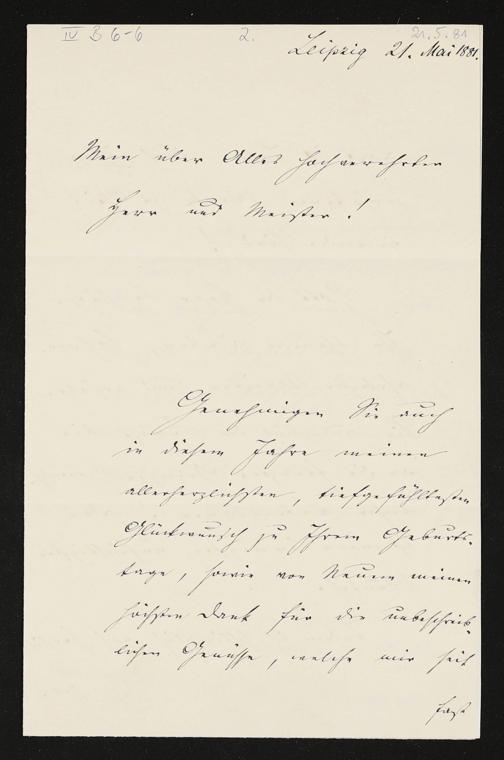 IV B 6-6 2. 21.5.81
Leipzig 21. Mai 1881.
Mein über Alles hochverehrter
Herr und Meister!
Genehmigen Sie auch
in diesem Jahre meinen
allerherzlichsten, tiefgefühltesten
Glückwunsch zu Ihrem Geburts-
tage, sowie von Neuem meinen
höchsten Dank für die unbeschreib-
lichen Genüsse, welche mir seit
fast